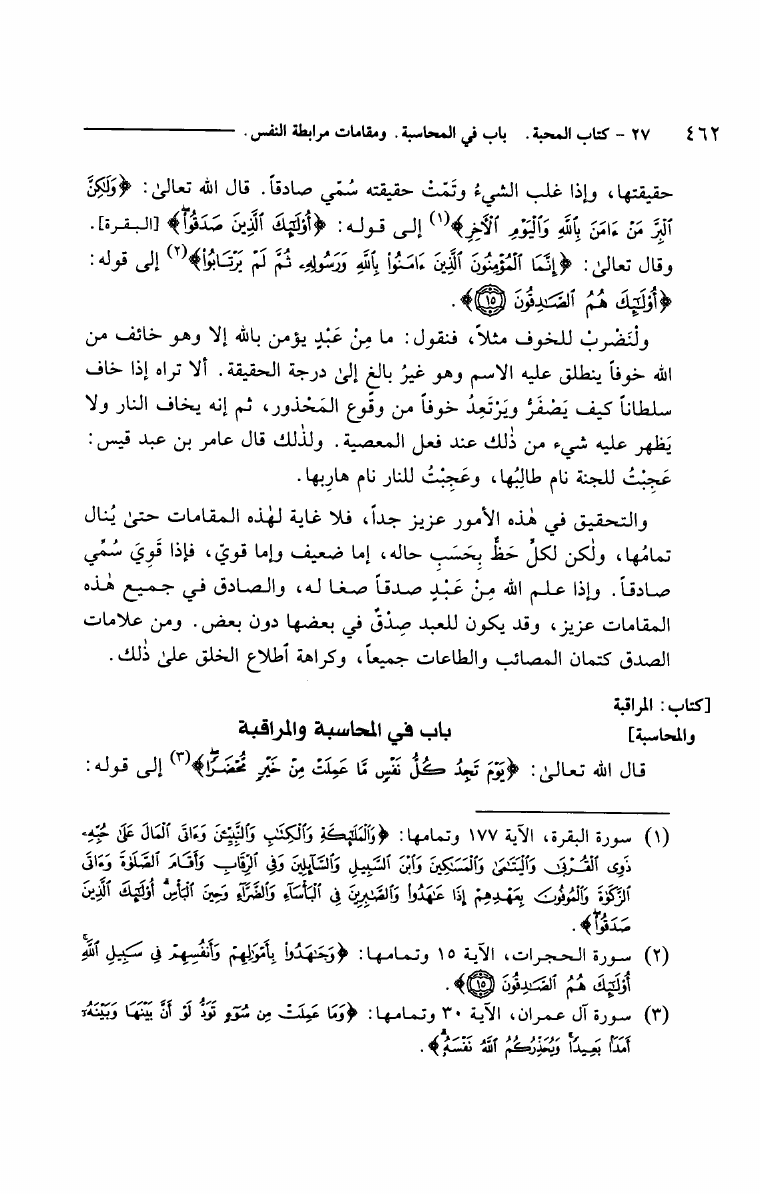 ٤٦٢ ٢٧ - كتاب المحبة. باب في المحاسبة. ومقامات مرابطة النفس.
حقيقتها، وإذا غلب الشيءُ وتَمّتْ حقيقته سُمّي صادقاً. قال الله تعالىٰ: ﴿وَلَٰكِنَّ
ٱلْبِرَّ مَنْ ءَامَنَ بِٱللَّهِ وَٱلْيَوْمِ ٱلْأَخِرِ﴾(١) إلى قوله: ﴿أُوْلَٰٓئِكَ ٱلَّذِينَ صَدَقُواْ﴾ [البقرة].
وقال تعالىٰ: ﴿إِنَّمَا ٱلْمُؤْمِنُونَ ٱلَّذِينَ ءَامَنُواْ بِٱللَّهِ وَرَسُولِهِۦ ثُمَّ لَمْ يَرْتَابُواْ﴾(٢) إلى قوله:
﴿أُوْلَٰٓئِكَ هُمُ ٱلصَّٰدِقُونَ ١٥﴾.
ولْنَضْربْ للخوف مثلاً، فنقول: ما مِنْ عَبْدٍ يؤمن بالله إلا وهو خائف من
الله خوفاً ينطلق عليه الاسم وهو غيرُ بالغٍ إلىٰ درجة الحقيقة. ألا تراه إذا خاف
سلطاناً كيف يَصْفَرُّ ويَرْتَعِدُ خوفاً من وقُوع المَحْذور، ثم إنه يخاف النار ولا
يَظهر عليه شيء من ذٰلك عند فعل المعصية. ولذٰلك قال عامر بن عبد قيس:
عَجِبْتُ للجنة نام طالِبُها، وعَجِبْتُ للنار نام هارِبها.
والتحقيق في هٰذه الأمور عزيز جداً، فلا غاية لهٰذه المقامات حتىٰ يُنال
تمامُها، ولٰكن لكلٍّ حَظٌّ بِحَسَبِ حاله، إما ضعيف وإما قويّ، فإذا قَوِيَ سُمِّي
صادقاً. وإذا علم الله مِنْ عَبْدٍ صدقاً صغا له، والصادق في جميع هٰذه
المقامات عزيز، وقد يكون للعبد صِدْقٌ في بعضها دون بعض. ومن علامات
الصدق كتمان المصائب والطاعات جميعاً، وكراهة ٱطلاع الخلق علىٰ ذٰلك.
[كتاب: المراقبة
والمحاسبة]
باب في المحاسبة والمراقبة
قال الله تعالىٰ: ﴿يَوْمَ تَجِدُ كُلُّ نَفْسٍ مَّا عَمِلَتْ مِنْ خَيْرٍ مُّحْضَرًا﴾(٣) إلى قوله:
(١) سورة البقرة، الآية ١٧٧ وتمامها: ﴿وَٱلْمَلَٰٓئِكَةِ وَٱلْكِتَٰبِ وَٱلنَّبِيِّـۧنَ وَءَاتَى ٱلْمَالَ عَلَىٰ حُبِّهِۦ
ذَوِى ٱلْقُرْبَىٰ وَٱلْيَتَٰمَىٰ وَٱلْمَسَٰكِينَ وَٱبْنَ ٱلسَّبِيلِ وَٱلسَّآئِلِينَ وَفِى ٱلرِّقَابِ وَأَقَامَ ٱلصَّلَوٰةَ وَءَاتَى
ٱلزَّكَوٰةَ وَٱلْمُوفُونَ بِعَهْدِهِمْ إِذَا عَٰهَدُواْ وَٱلصَّٰبِرِينَ فِى ٱلْبَأْسَآءِ وَٱلضَّرَّآءِ وَحِينَ ٱلْبَأْسِ أُوْلَٰٓئِكَ ٱلَّذِينَ
صَدَقُواْ﴾.
(٢) سورة الحجرات، الآية ١٥ وتمامها: ﴿وَجَٰهَدُواْ بِأَمْوَٰلِهِمْ وَأَنفُسِهِمْ فِى سَبِيلِ ٱللَّهِ
أُوْلَٰٓئِكَ هُمُ ٱلصَّٰدِقُونَ ١٥﴾.
(٣) سورة آل عمران، الآية ٣٠ وتمامها: ﴿وَمَا عَمِلَتْ مِن سُوٓءٍ تَوَدُّ لَوْ أَنَّ بَيْنَهَا وَبَيْنَهُۥٓ
أَمَدًۢا بَعِيدًا وَيُحَذِّرُكُمُ ٱللَّهُ نَفْسَهُۥ﴾.